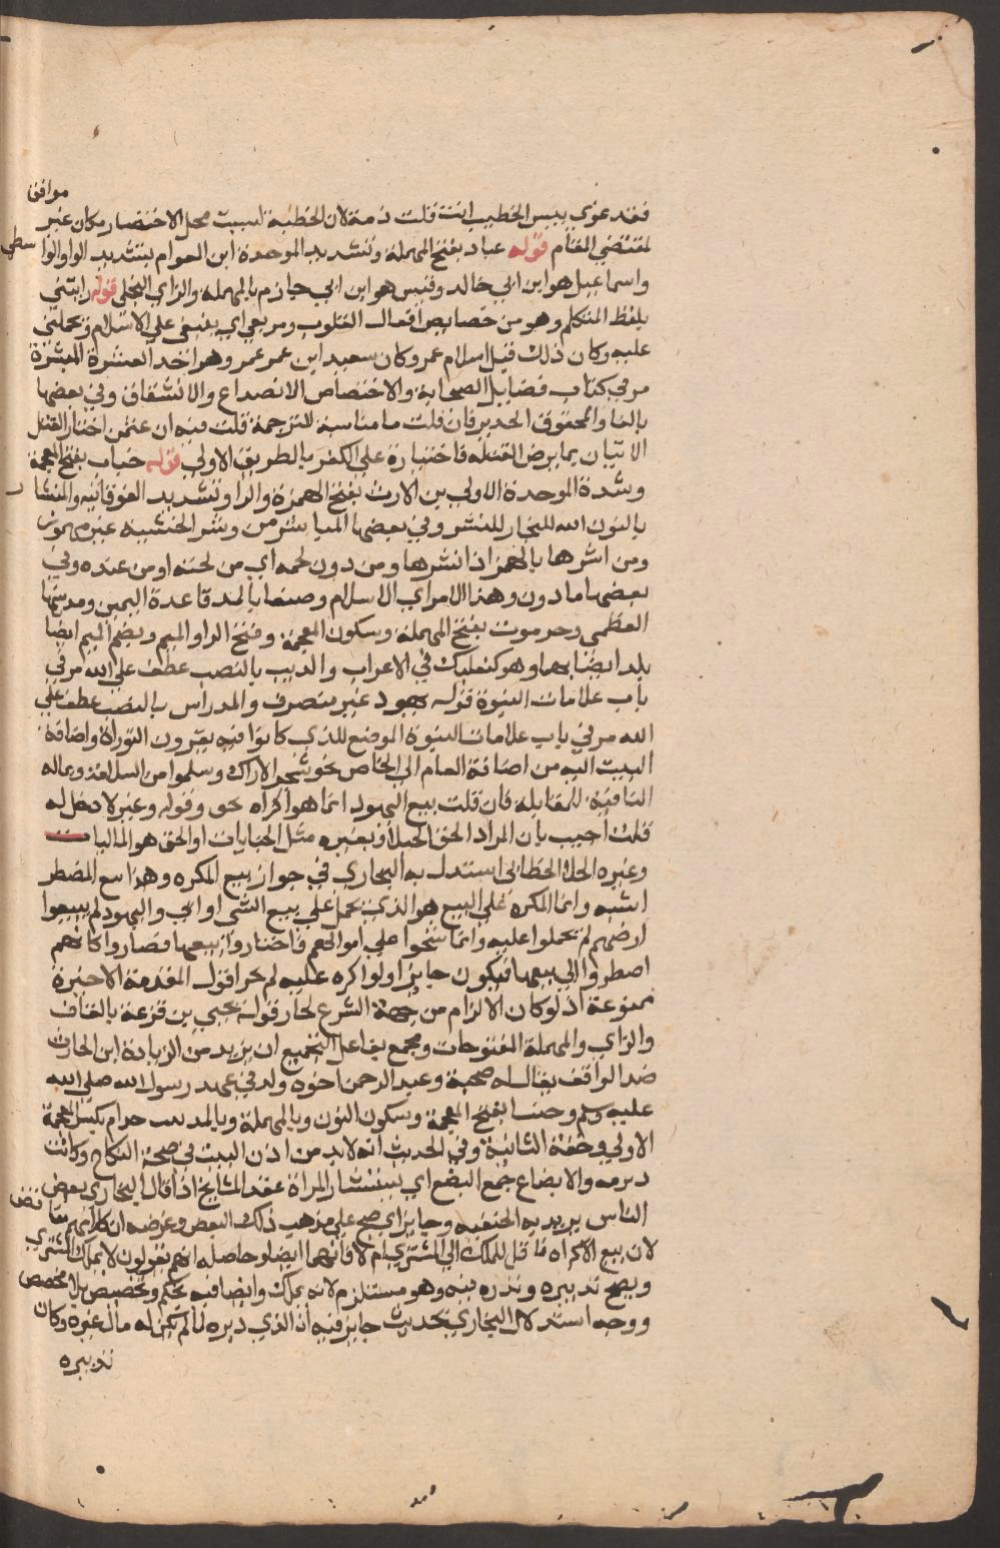 موافق
فقد غوي بيس الخطيب انت قلت ذمه لان الخطبة ليست محل الاختصار مكان غير
لمقتضي المقام قوله عباد بفتح المهملة وتشديد الموحدة ابن العوام بتشديد الواو الواسطي
واسماعيل هو ابن ابي خالد وقيس هو ابن ابي حازم بالمهملة والزاي البجلي قوله رايتني
بلفظ المتكلم وهو من خصايص افعال القلوب ومربعي اي يثبتني علي الاسلام ويحملني
عليه وكان ذلك قبل اسلام عمر وكان سعيد ابن عمر عمر وهو احد العشرة المبشرة
مر في كتاب فضايل الصحابة والاختصاص الانصداع والانشقاق وفي بعضها
بالفا والمحقوق الجدير فان قلت ما مناسبة للترجمة قلت فيه ان عثمن اختار القتل
الاتيان بما يرض القتلة فاختياره علي الكفر بالطريق الاولي قوله خباب بفتح المعجمة
وشدة الموحدة الاولي بن الارت بفتح الهمزة والرا وتشديد الفوقانية والمنشار
بالنون الله للنجار للنشر وفي بعضها الميا شر من وشر الخشبة غير مهموز
ومن اشرها بالهمز اذا نشرها ومن دون لحمه اي من لحته او من عنده وفي
بعضها ما دون وهذا الامر اي الاسلام وصنعا بالمد قاعدة اليمن ومدينتها
العظمي وحرموت بفتح المهملة وسكون المعجمة وفتح الرا والميم وبضم الميم ايضا
بلد ايضا بها وهو كبعلبك في الاعراب والذيب بالنصب عطف علي الله مر في
باب علامات النبوة قوله يهود غير منصرف والمدراس بالنصب عطف علي
الله مر في باب علامات النبوة الموضع للذي كانوا فيه يقرون التوراة واضافة
البيت اليه من اضافة العام الي الخاص نحو شجر الاراك وسلموا من السلامة وبماله
البا فيه للمقابلة فان قلت بيع اليهود انما هو اكراه بحق وقوله وغيره لا دخل له
قلت اجيب بان المراد الحق الجلا او بغيره مثل الجنايات او الحق هو الماليات
وغيره الجلا الخطابي استدل به البخاري في جواز بيع المكره وهذا ببيع المضطر
اشبه وانما المكره علي البيع هو الذي يحمل علي بيع الشي او ابي واليهود لم يبيعوا
ارضهم لم يحملوا عليه وانما شحوا علي اموالهم فاختاروا بيعها فصاروا كانهم
اضطروا الي بيعها فيكون جايزا ولو اكره عليه لم يجز اقول المقدمة الاخيرة
ممنوعة اذ لو كان الالزام من جهة الشرع لجاز قوله يحيي بن قزعة بالقاف
والزاي والمهملة المفتوحات ومجمع بفاعل التجميع ان يزيد من الزيادة ابن الحارث
ضد الواقف يقال له صحبة وعبد الرحمن اخوه ولد في عهد رسول الله صلي الله
عليه وسلم وخنسا بفتح المعجمة وسكون النون وبالمهملة وبالمد بنت حرام بكسر المعجمة
الاولي وخفة الثانية وفي الحديث انه لابد من اذن البيت في صحة النكاح وكانت
ديرمه والابضاع جمع البضع اي يستشار المراة عقد المشايخ اذا قال البخاري بعض
الناس يريد به الحنفية وجايز اي صح علي مذهب ذلك البعض وغرضه ان كلامهم متناقض
لان بيع الاكراه قا قل للملك الي المشتري ام لا فانهما ايضا وحاصله انهم يقولون لا يملك المشتري
ويصح تدبيره ونذره فيه وهو مستلزم لانه يملك وايضا فيه تحكم وتخصيص بلا مخصص
ووجه استدلال البخاري بحديث جابر فيه ان الذي دبره لما لم يكن له مال غيره وكان
تدبيره